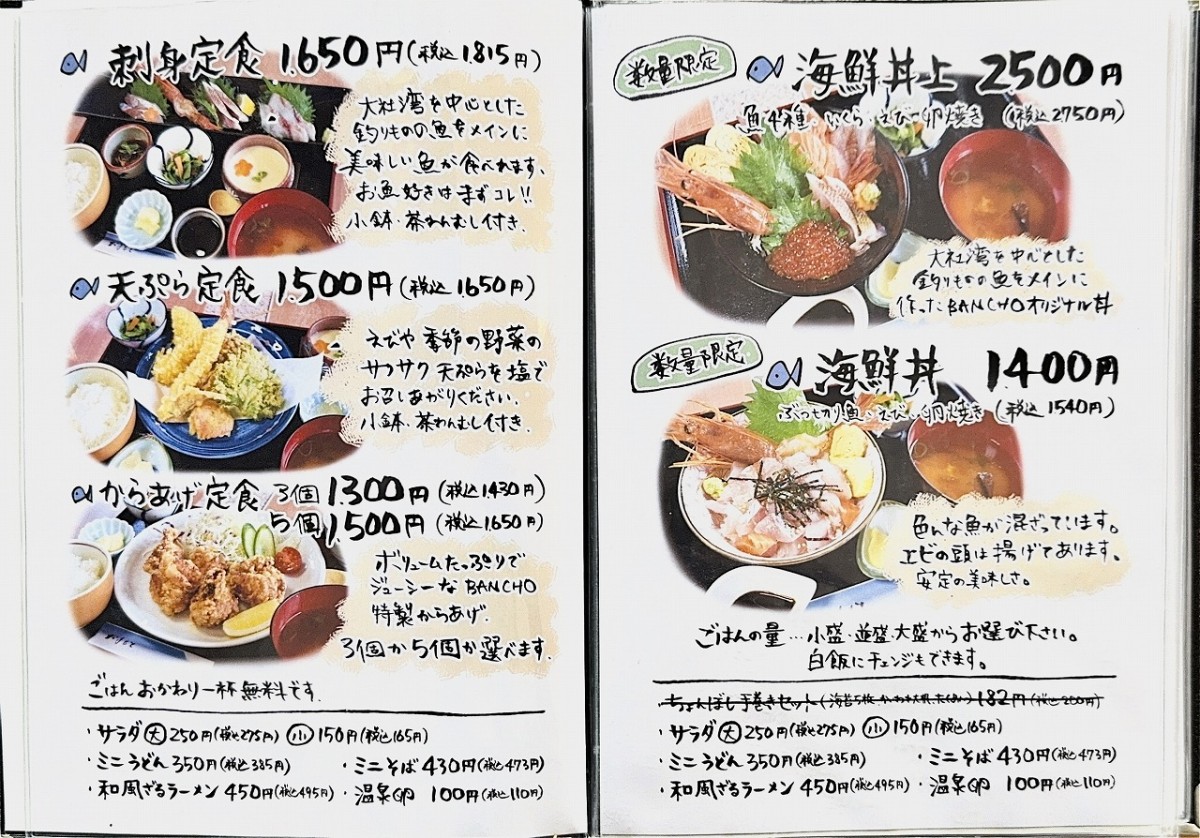 刺身定食 1,650円(税込1,815円)
大社湾を中心とした
釣りものの魚をメインに
美味しい魚が食べれます。
お魚好きはまずコレ!!
小鉢・茶わんむし付き.
天ぷら定食 1,500円(税込1,650円)
えびや季節の野菜の
サクサク天ぷらを塩で
お召しあがりください.
小鉢・茶わんむし付き.
からあげ定食 3個 1,300円(税込1,430円)
5個 1,500円(税込1,650円)
ボリュームたっぷりで
ジューシーなBANCHO
特製からあげ.
3個か5個か選べます.
ごはんおかわり一杯無料です.
・サラダ 大 250円(税込275円) 小 150円(税込165円)
・ミニうどん 350円(税込385円) ・ミニそば 430円(税込473円)
・和風ざるラーメン 450円(税込495円) ・温泉卵 100円(税込110円)
数量限定
海鮮丼上 2500円
魚4種・いくら・えび・卵焼き (税込2750円)
大社湾を中心とした
釣りものの魚をメインに
作ったBANCHOオリジナル丼
数量限定
海鮮丼 1,400円
ぶつもり魚・えび・卵焼き (税込1540円)
色んな魚が混ざっています。
エビの頭は揚げてあります。
安定の美味しさ。
ごはんの量…小盛・並盛・大盛からお選び下さい。
白飯にチェンジもできます。
・ちょんぼし手巻きセット 182円(税込200円)
・サラダ 大 250円(税込275円) 小 150円(税込165円)
・ミニうどん 350円(税込385円) ・ミニそば 430円(税込473円)
・和風ざるラーメン 450円(税込495円) ・温泉卵 100円(税込110円)